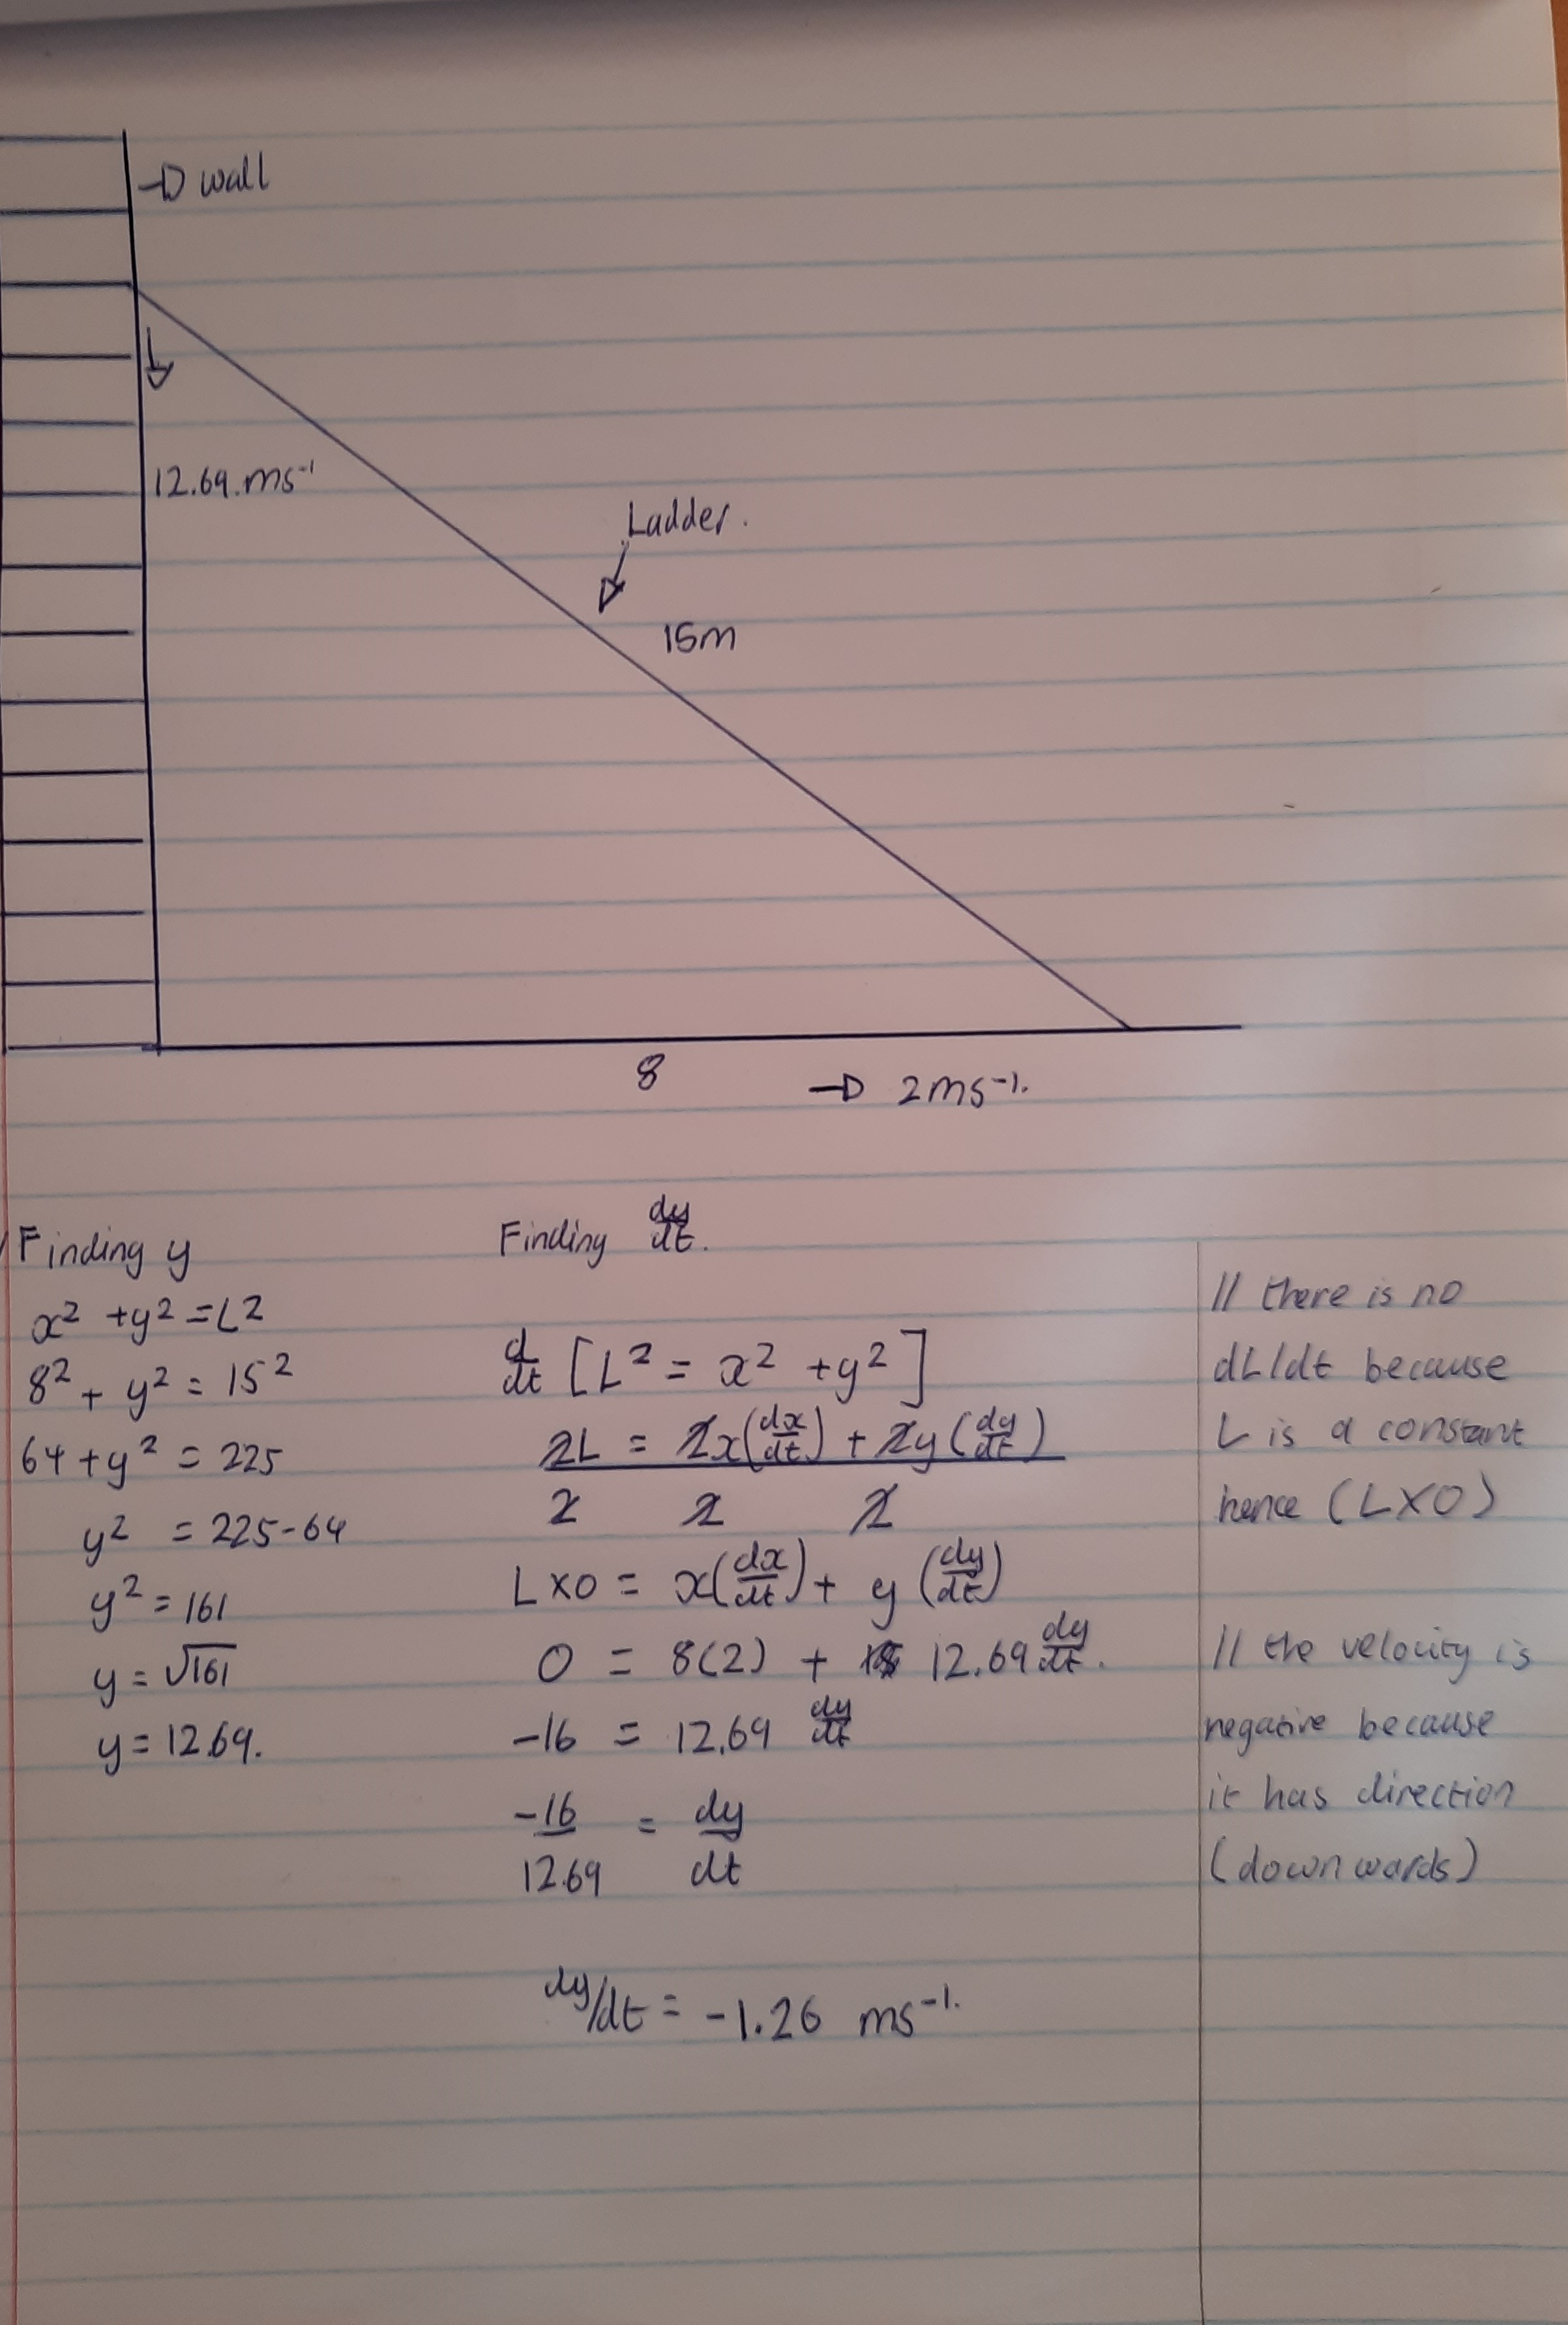 → wall
12.69.ms⁻¹
Ladder.
15m
8
→ 2ms⁻¹.
Finding y
x² + y² = L²
8² + y² = 15²
64 + y² = 225
y² = 225-64
y² = 161
y = √161
y = 12.69.
Finding dy/dt.
d/dt [L² = x² + y²]
2L = 2x(dx/dt) + 2y(dy/dt)
2 2 2
L×0 = x(dx/dt) + y(dy/dt)
0 = 8(2) + 12.69 dy/dt.
-16 = 12.69 dy/dt
-16/12.69 = dy/dt
dy/dt = -1.26 ms⁻¹.
// there is no
dL/dt because
L is a constant
hence (L×0)
// the velocity is
negative because
it has direction
(downwards)